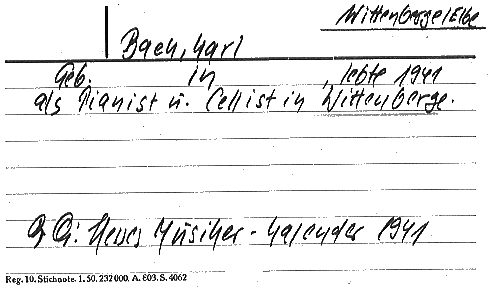 Wittenberge/Elbe
Bach, Karl
Geb. in , lebte 1941
als Pianist u. Cellist in Wittenberge.
Q: Hesses Musiker-Kalender 1941
Reg. 10. Stichnote. 1. 50. 232000. A. E03. S. 4062